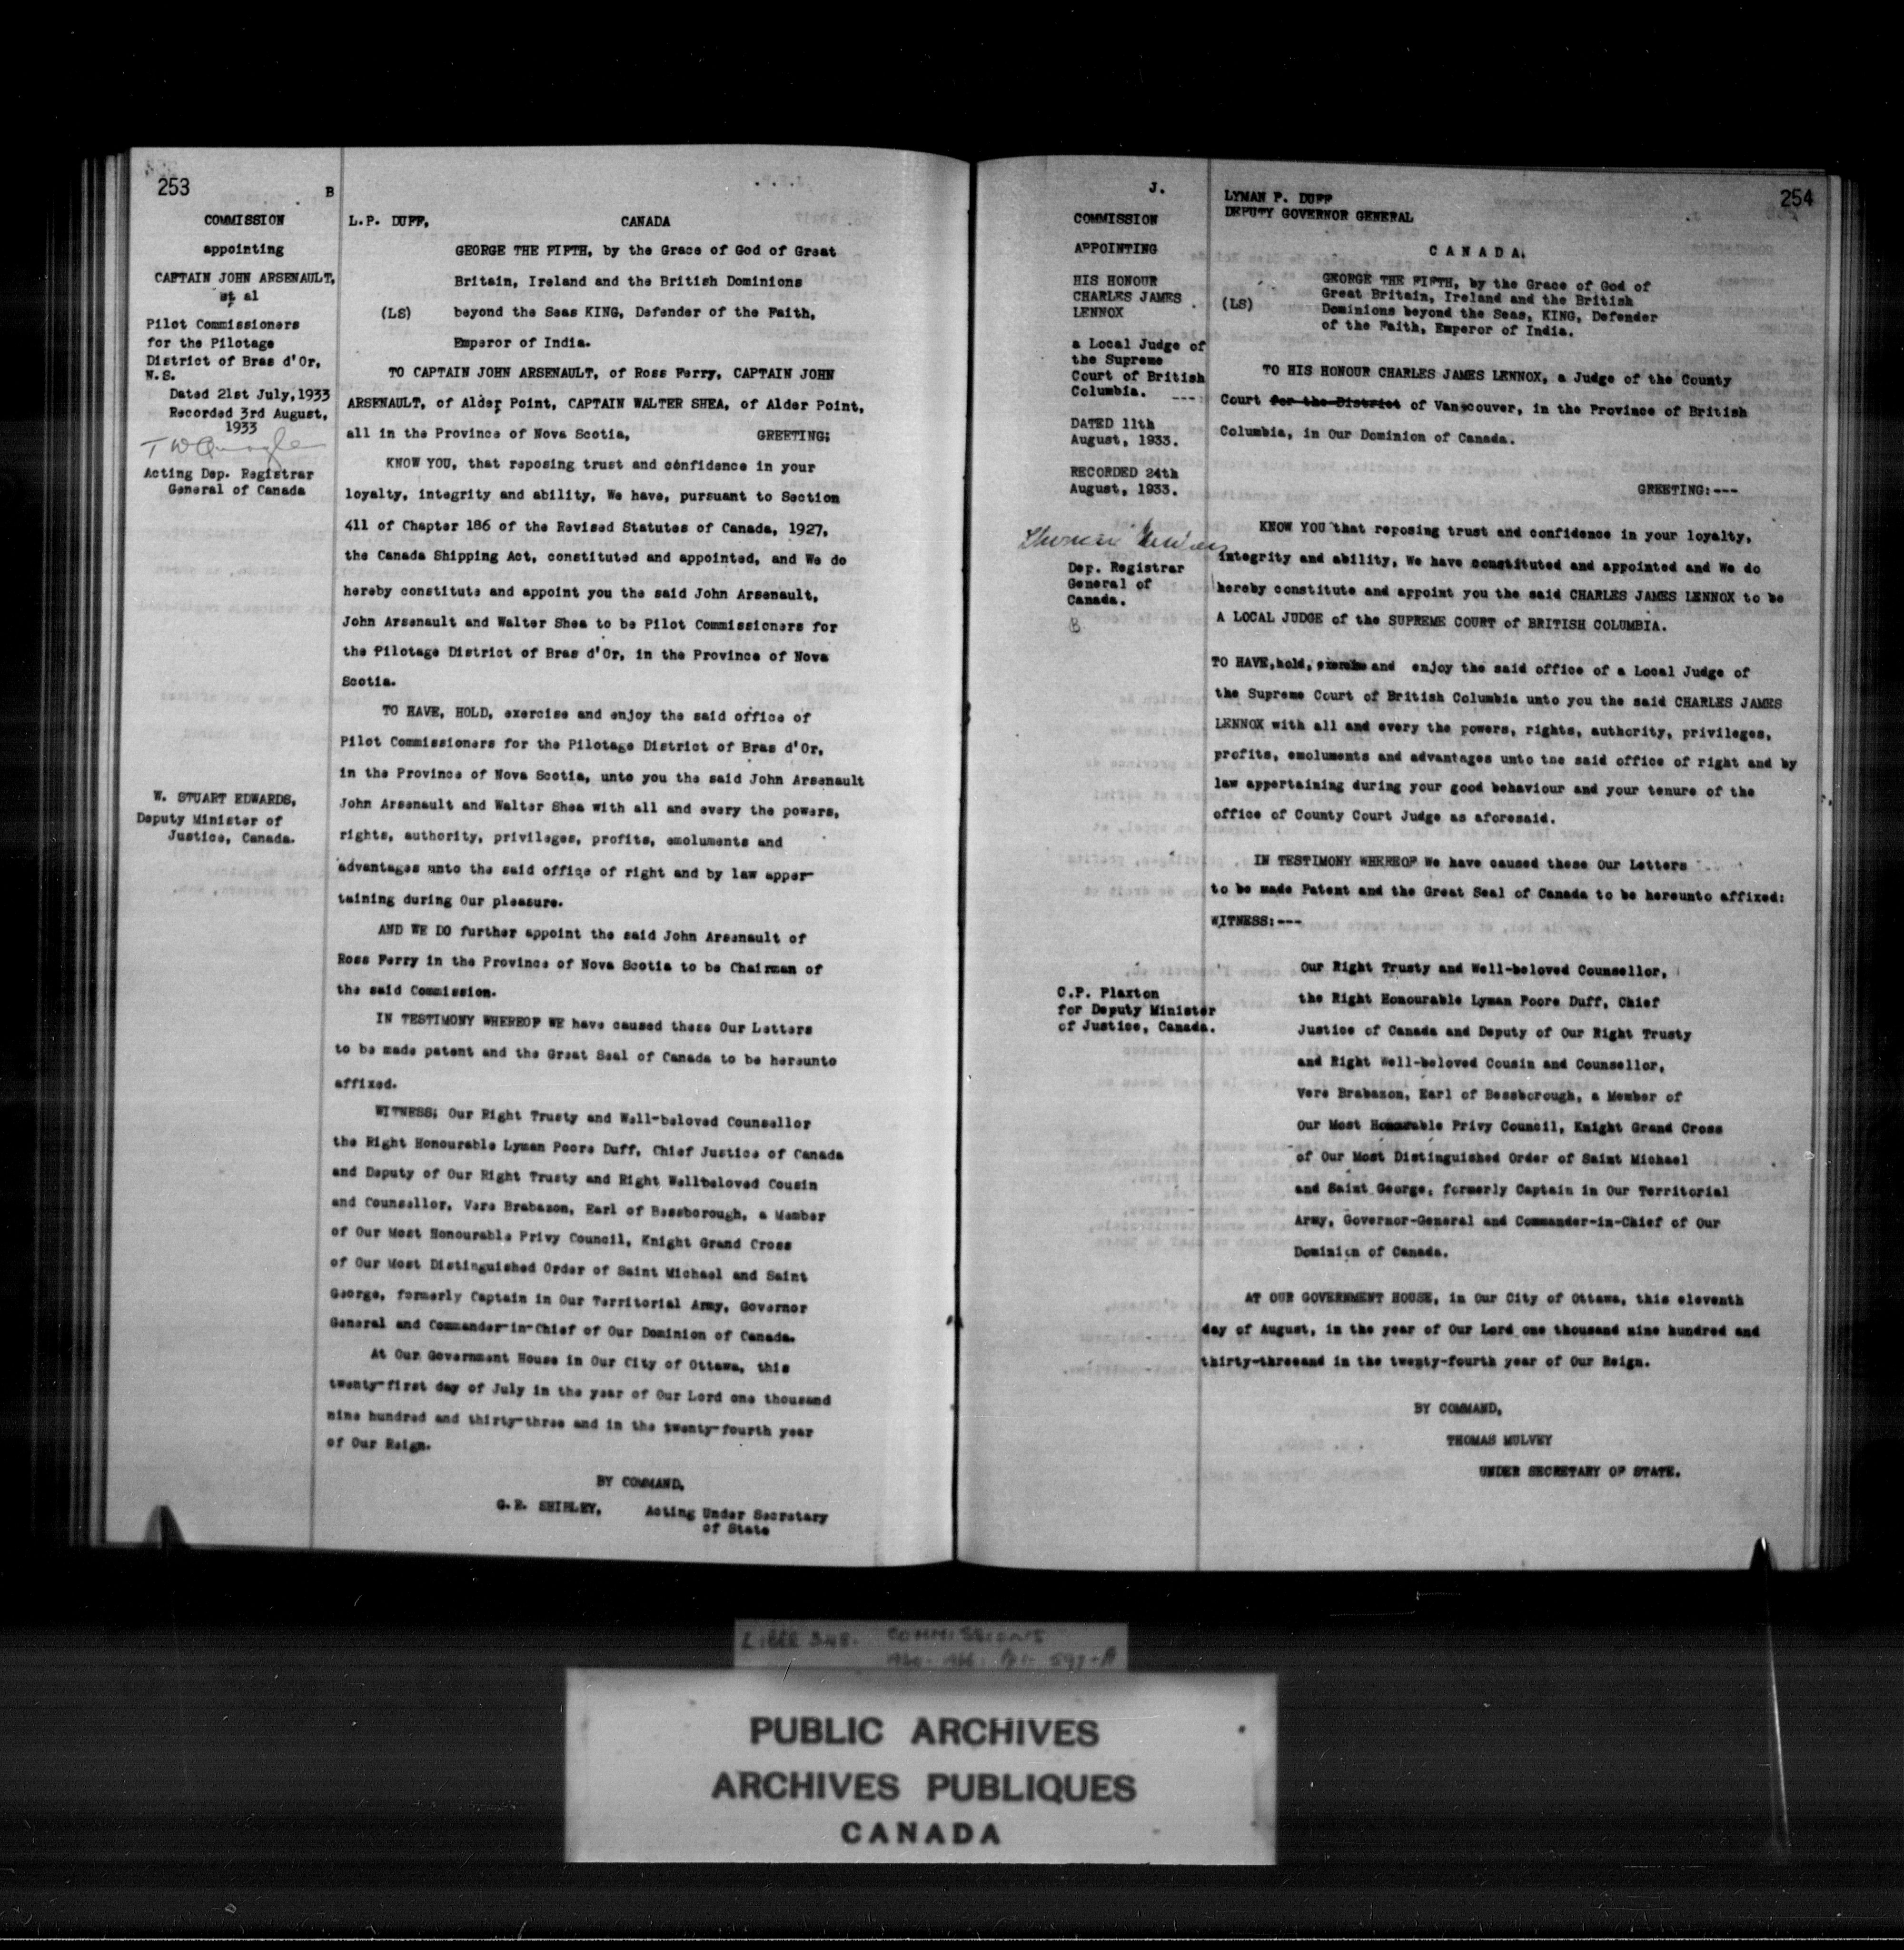 253
B
COMMISSION
appointing
CAPTAIN JOHN ARSENAULT,
et al
Pilot Commissioners
for the Pilotage
District of Bras d'Or,
N.S.
Dated 21st July, 1933
Recorded 3rd August,
1933
Acting Dep. Registrar
General of Canada
W. STUART EDWARDS,
Deputy Minister of
Justice, Canada.
L.P. DUFF, CANADA
GEORGE THE FIFTH, by the Grace of God of Great
Britain, Ireland and the British Dominions
(LS) beyond the Seas KING, Defender of the Faith,
Emperor of India.
TO CAPTAIN JOHN ARSENAULT, of Ross Ferry, CAPTAIN JOHN
ARSENAULT, of Alder Point, CAPTAIN WALTER SHEA, of Alder Point,
all in the Province of Nova Scotia, GREETING;
KNOW YOU, that reposing trust and confidence in your
loyalty, integrity and ability, We have, pursuant to Section
411 of Chapter 186 of the Revised Statutes of Canada, 1927,
the Canada Shipping Act, constituted and appointed, and We do
hereby constitute and appoint you the said John Arsenault,
John Arsenault and Walter Shea to be Pilot Commissioners for
the Pilotage District of Bras d'Or, in the Province of Nova
Scotia.
TO HAVE, HOLD, exercise and enjoy the said office of
Pilot Commissioners for the Pilotage District of Bras d'Or,
in the Province of Nova Scotia, unto you the said John Arsenault
John Arsenault and Walter Shea with all and every the powers,
rights, authority, privileges, profits, emoluments and
advantages unto the said office of right and by law apper-
taining during Our pleasure.
AND WE DO further appoint the said John Arsenault of
Ross Ferry in the Province of Nova Scotia to be Chairman of
the said Commission.
IN TESTIMONY WHEREOF WE have caused these Our Letters
to be made patent and the Great Seal of Canada to be hereunto
affixed.
WITNESS; Our Right Trusty and Well-beloved Counsellor
the Right Honourable Lyman Poore Duff, Chief Justice of Canada
and Deputy of Our Right Trusty and Right Wellbeloved Cousin
and Counsellor, Vere Brabazon, Earl of Bessborough, a Member
of Our Most Honourable Privy Council, Knight Grand Cross
of Our Most Distinguished Order of Saint Michael and Saint
George, formerly Captain in Our Territorial Army, Governor
General and Commander-in-Chief of Our Dominion of Canada.
At Our Government House in Our City of Ottawa, this
twenty-first day of July in the year of Our Lord one thousand
nine hundred and thirty-three and in the twenty-fourth year
of Our Reign.
BY COMMAND,
G.R. SHIBLEY, Acting Under Secretary
of State
254
J.
COMMISSION
APPOINTING
HIS HONOUR
CHARLES JAMES
LENNOX
a Local Judge of
the Supreme
Court of British
Columbia. ---
DATED 11th
August, 1933.
RECORDED 24th
August, 1933.
Dep. Registrar
General of
Canada.
B
C.P. Plaxton
for Deputy Minister
of Justice, Canada.
LYMAN P. DUFF
DEPUTY GOVERNOR GENERAL
CANADA.
GEORGE THE FIFTH, by the Grace of God of
Great Britain, Ireland and the British
(LS) Dominions beyond the Seas, KING, Defender
of the Faith, Emperor of India.
TO HIS HONOUR CHARLES JAMES LENNOX, a Judge of the County
Court for the District of Vancouver, in the Province of British
Columbia, in Our Dominion of Canada.
GREETING:---
KNOW YOU that reposing trust and confidence in your loyalty,
integrity and ability, We have constituted and appointed and We do
hereby constitute and appoint you the said CHARLES JAMES LENNOX to be
A LOCAL JUDGE of the SUPREME COURT of BRITISH COLUMBIA.
TO HAVE, hold, and enjoy the said office of a Local Judge of
the Supreme Court of British Columbia unto you the said CHARLES JAMES
LENNOX with all and every the powers, rights, authority, privileges,
profits, emoluments and advantages unto the said office of right and by
law appertaining during your good behaviour and your tenure of the
office of County Court Judge as aforesaid.
IN TESTIMONY WHEREOF We have caused these Our Letters
to be made Patent and the Great Seal of Canada to be hereunto affixed:
WITNESS:---
Our Right Trusty and Well-beloved Counsellor,
the Right Honourable Lyman Poore Duff, Chief
Justice of Canada and Deputy of Our Right Trusty
and Right Well-beloved Cousin and Counsellor,
Vere Brabazon, Earl of Bessborough, a Member of
Our Most Honourable Privy Council, Knight Grand Cross
of Our Most Distinguished Order of Saint Michael
and Saint George, formerly Captain in Our Territorial
Army, Governor-General and Commander-in-Chief of Our
Dominion of Canada.
AT OUR GOVERNMENT HOUSE, in Our City of Ottawa, this eleventh
day of August, in the year of Our Lord one thousand nine hundred and
thirty-threeand in the twenty-fourth year of Our Reign.
BY COMMAND,
THOMAS MULVEY
UNDER SECRETARY OF STATE.
LIBER 348. COMMISSIONS
PUBLIC ARCHIVES
ARCHIVES PUBLIQUES
CANADA